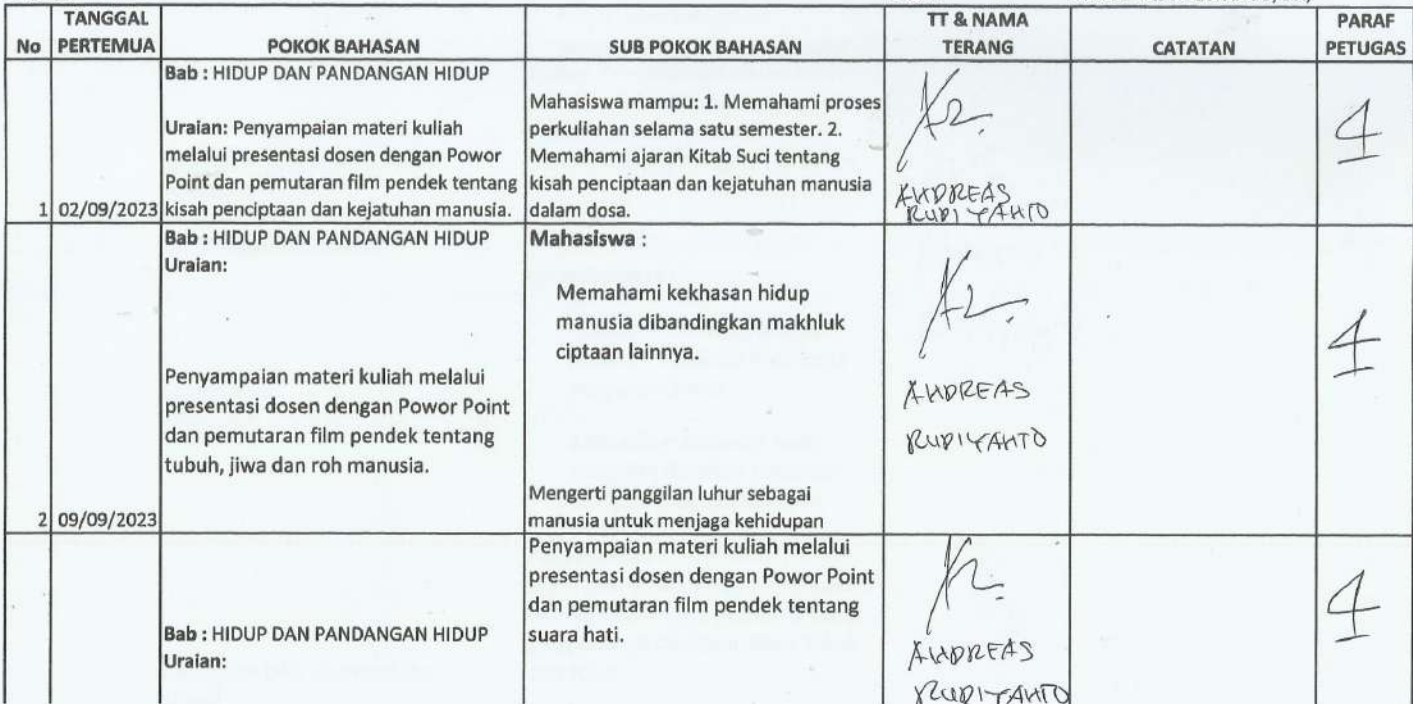 TANGGAL
No PERTEMUA POKOK BAHASAN SUB POKOK BAHASAN TT & NAMA TERANG CATATAN PARAF PETUGAS
Bab : HIDUP DAN PANDANGAN HIDUP
Uraian: Penyampaian materi kuliah
melalui presentasi dosen dengan Powor
Point dan pemutaran film pendek tentang
1 02/09/2023 kisah penciptaan dan kejatuhan manusia.
Mahasiswa mampu: 1. Memahami proses
perkuliahan selama satu semester. 2.
Memahami ajaran Kitab Suci tentang
kisah penciptaan dan kejatuhan manusia
dalam dosa.
ANDREAS
RUDIYANTO
Bab : HIDUP DAN PANDANGAN HIDUP
Uraian:
Penyampaian materi kuliah melalui
presentasi dosen dengan Powor Point
dan pemutaran film pendek tentang
tubuh, jiwa dan roh manusia.
2 09/09/2023
Mahasiswa :
Memahami kekhasan hidup
manusia dibandingkan makhluk
ciptaan lainnya.
Mengerti panggilan luhur sebagai
manusia untuk menjaga kehidupan
ANDREAS
RUDIYANTO
Bab : HIDUP DAN PANDANGAN HIDUP
Uraian:
Penyampaian materi kuliah melalui
presentasi dosen dengan Powor Point
dan pemutaran film pendek tentang
suara hati.
ANDREAS
RUDIYANTO